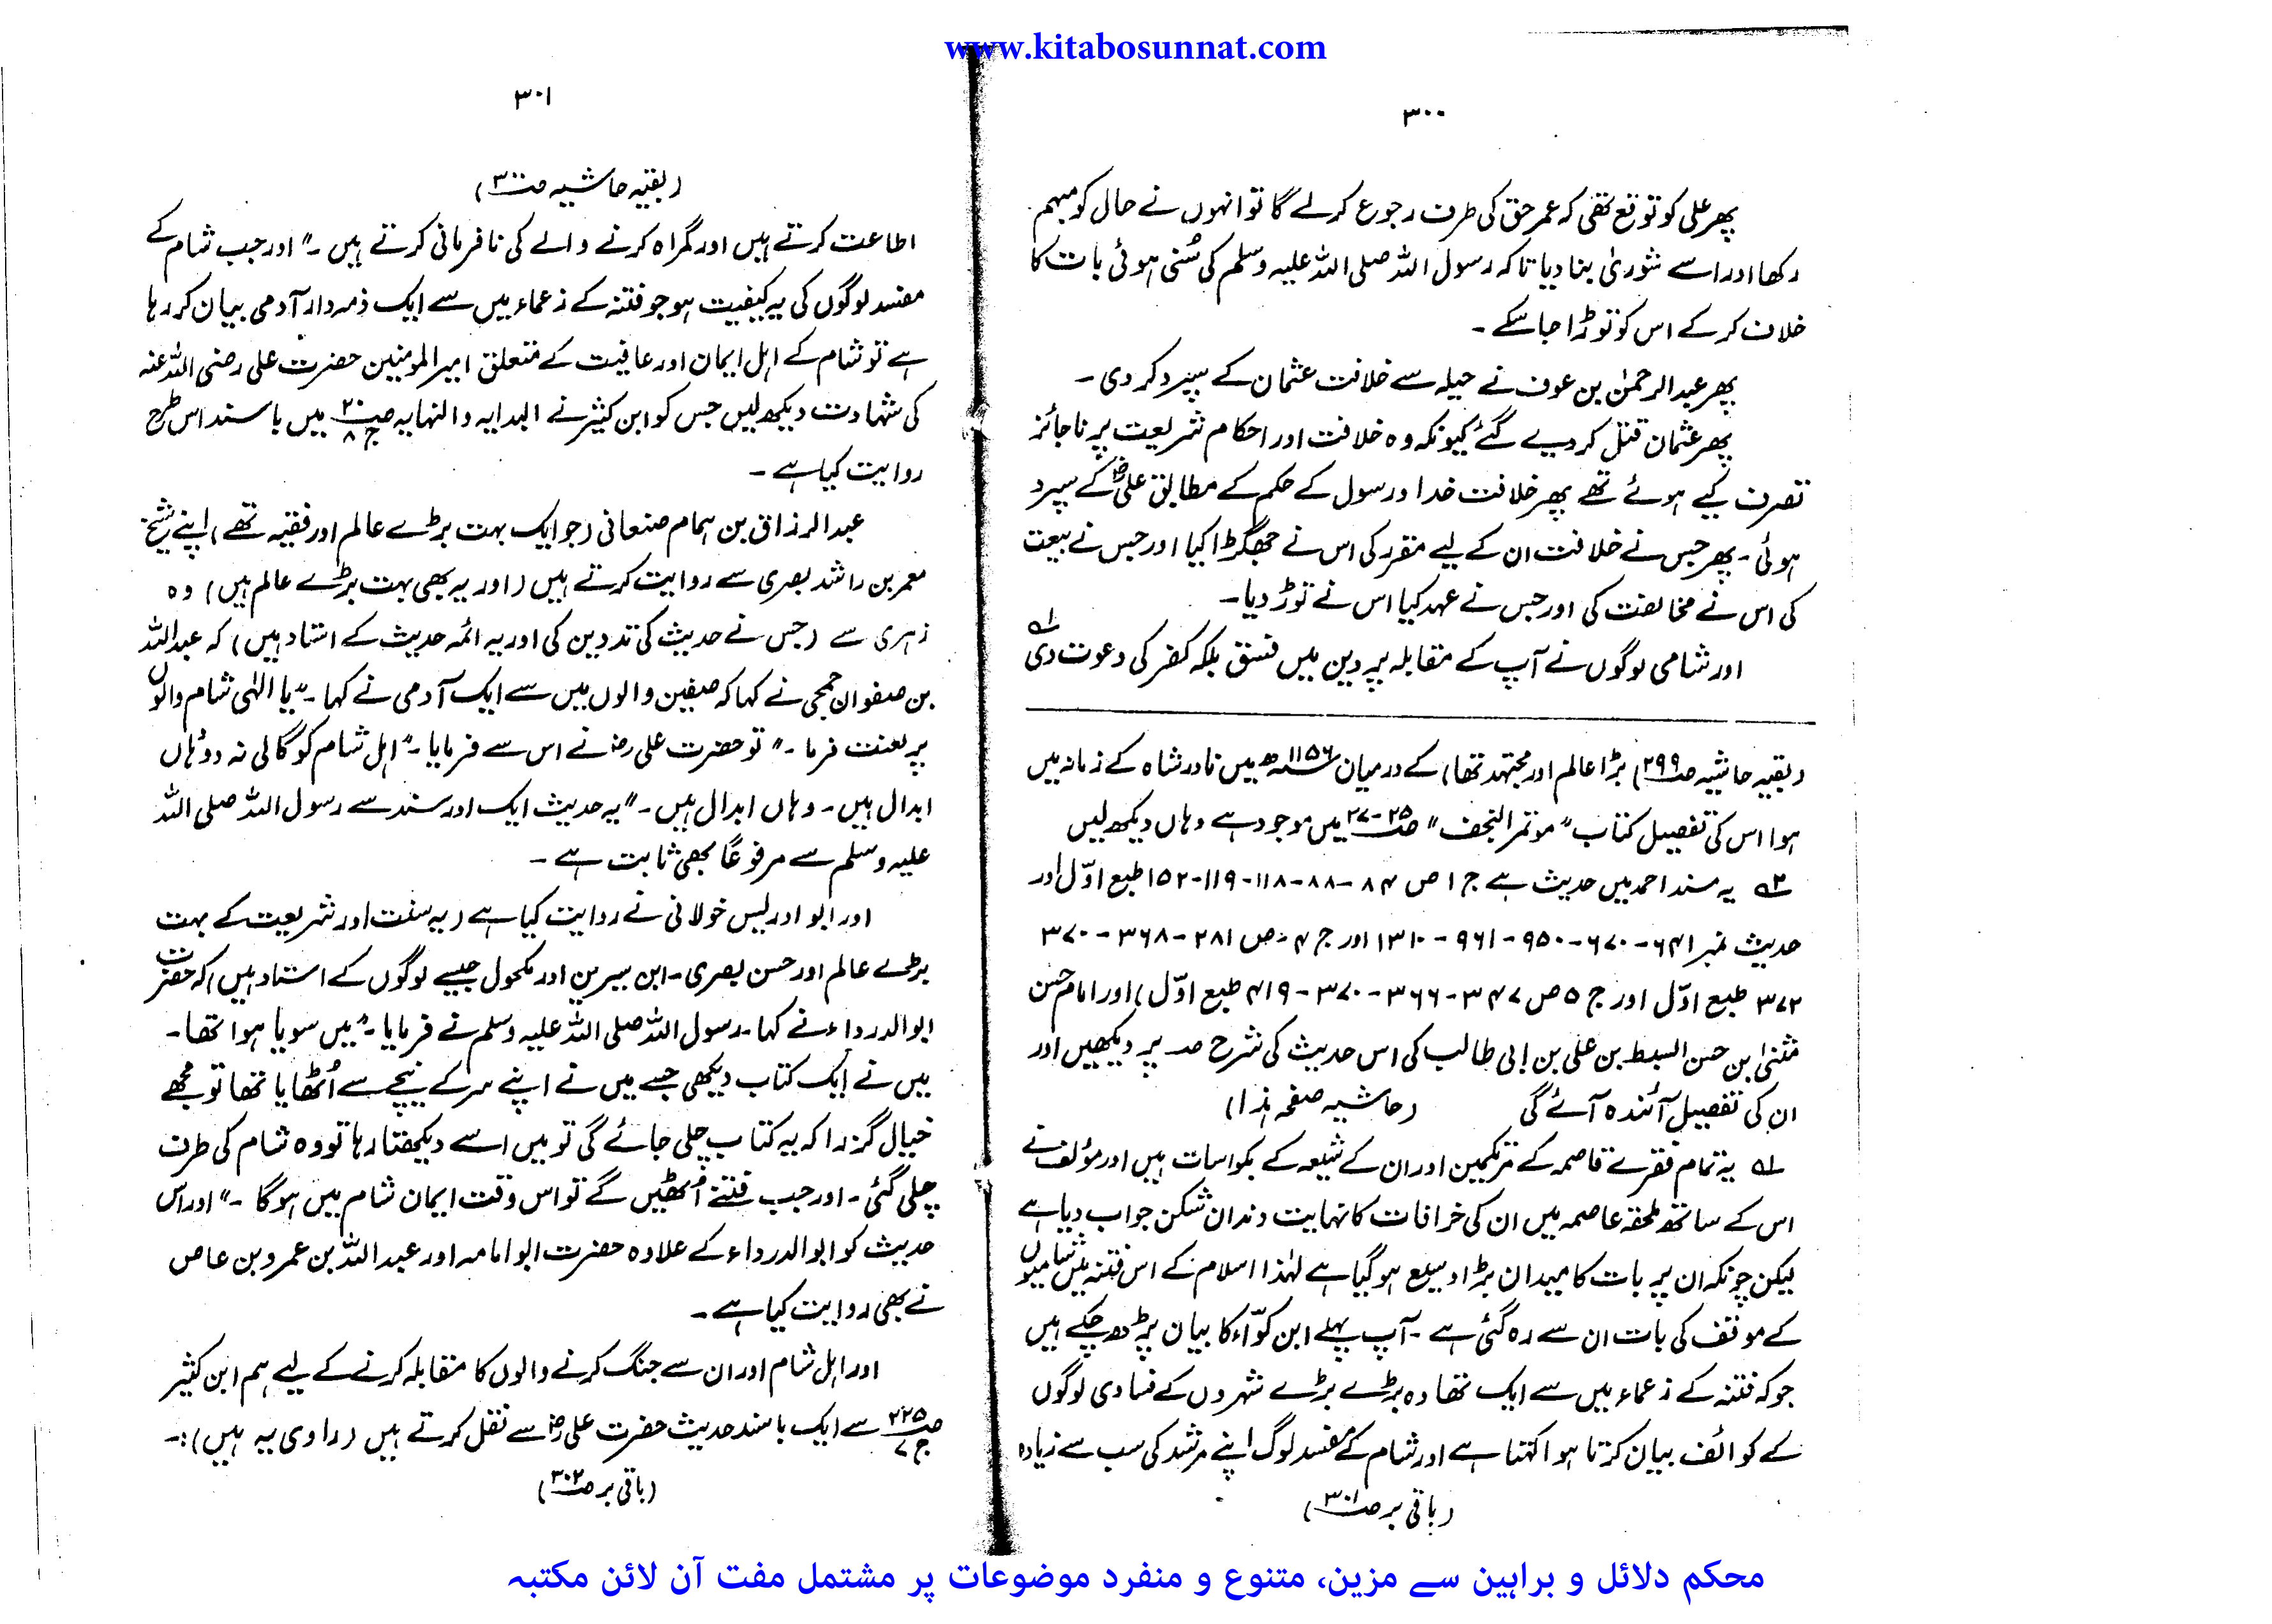 www.kitabosunnat.com
۳۰۰
پھر علی کو توقع تھی کہ عمر حق کی طرف رجوع کرلے گا تو انہوں نے حال کو مبہم
رکھا اور اسے شوریٰ بنا دیا تاکہ رسول اللہ صلی اللہ علیہ وسلم کی سُنی ہوئی بات کا
خلاف کر کے اس کو توڑا جا سکے ۔
پھر عبدالرحمٰن بن عوف نے حیلہ سے خلافت عثمان کے سپرد کر دی ۔
پھر عثمان قتل کر دیے گئے کیونکہ وہ خلافت اور احکام شریعت پر ناجائز
تصرف کیے ہوئے تھے پھر خلافت خدا ورسول کے حکم کے مطابق علیؓ کے سپرد
ہوئی ۔ پھر جس نے خلافت ان کے لیے مقرر کی اس نے جھگڑا کیا اور جس نے بیعت
کی اس نے مخالفت کی اور جس نے عہد کیا اس نے توڑ دیا ۔
اور شامی لوگوں نے آپ کے مقابلہ پر دین میں فسق بلکہ کفر کی دعوت دی ؂۱
(بقیہ حاشیہ ص۲۹۹) بڑا عالم اور مجتہد تھا) کے درمیان ۱۱۵۶ھ میں نادر شاہ کے زمانہ میں
ہوا اس کی تفصیل کتاب "موتمر النجف" ص۲۵-۲۷ میں موجود ہے وہاں دیکھ لیں
؂۳ یہ مسند احمد میں حدیث ہے ج ۱ ص ۸۴-۸۸-۱۱۸-۱۱۹-۱۵۲ طبع اوّل اور
حدیث نمبر ۶۴۱-۶۷۰-۹۵۰-۹۶۱-۱۳۱۰ اور ج ۴-ص ۲۸۱-۳۶۸-۳۷۰
۳۷۲ طبع اوّل اور ج ۵ ص ۳۴۷-۳۶۶-۳۷۰-۴۱۹ طبع اوّل) اور امام حسن
مثنیٰ ابن حسن السبط بن علی بن ابی طالب کی اس حدیث کی شرح صـ پر دیکھیں اور
ان کی تفصیل آئندہ آئے گی (حاشیہ صفحہ ہٰذا)
؂۱ یہ تمام فقرے قاصمہ کے مرتکبین اور ان کے شیعہ کے بکواسات ہیں اور مؤلف نے
اس کے ساتھ ملحقہ عاصمہ میں ان کی خرافات کا نہایت دندان شکن جواب دیا ہے
لیکن چونکہ ان پر بات کا میدان بڑا وسیع ہو گیا ہے لہٰذا اسلام کے اس فتنہ میں شامیوں
کے موقف کی بات ان سے رہ گئی ہے ۔ آپ پہلے ابن کوّاء کا بیان پڑھ چکے ہیں
جو کہ فتنہ کے زعماء میں سے ایک تھا وہ بڑے بڑے شہروں کے فسادی لوگوں
کے کوائف بیان کرتا ہوا کہتا ہے اور شام کے مفسد لوگ اپنے مرشد کی سب سے زیادہ
(باقی بر ص۳۰۱)
۳۰۱
(بقیہ حاشیہ ص۳۰۰)
اطاعت کرتے ہیں اور گمراہ کرنے والے کی نافرمانی کرتے ہیں ۔" اور جب شام کے
مفسد لوگوں کی یہ کیفیت ہو جو فتنہ کے زعماء میں سے ایک ذمہ دار آدمی بیان کر رہا
ہے تو شام کے اہل ایمان اور عافیت کے متعلق امیر المومنین حضرت علی رضی اللہ عنہ
کی شہادت دیکھ لیں جس کو ابن کثیر نے البدایہ والنہایہ ص۲۰ ج۸ میں باسند اس طرح
روایت کیا ہے ۔
عبدالرزاق بن ہمام صنعانی (جو ایک بہت بڑے عالم اور فقیہ تھے) اپنے شیخ
معمر بن راشد بصری سے روایت کرتے ہیں (اور یہ بھی بہت بڑے عالم ہیں) وہ
زہری سے (جس نے حدیث کی تدوین کی اور یہ ائمہ حدیث کے استاد ہیں) کہ عبداللہ
بن صفوان جمحی نے کہا کہ صفین والوں میں سے ایک آدمی نے کہا ۔"یا الٰہی شام والوں
پر لعنت فرما ۔" تو حضرت علی رضؓ نے اس سے فرمایا ۔"اہل شام کو گالی نہ دو وہاں
ابدال ہیں ۔ وہاں ابدال ہیں ۔" یہ حدیث ایک اور سند سے رسول اللہ صلی اللہ
علیہ وسلم سے مرفوعًا بھی ثابت ہے ۔
اور ابو ادریس خولانی نے روایت کیا ہے (یہ سنت اور شریعت کے بہت
بڑے عالم اور حسن بصری ۔ ابن سیرین اور مکحول جیسے لوگوں کے استاد ہیں) کہ حضرت
ابوالدرداء نے کہا ۔ رسول اللہ صلی اللہ علیہ وسلم نے فرمایا ۔"میں سویا ہوا تھا ۔
میں نے ایک کتاب دیکھی جسے میں نے اپنے سر کے نیچے سے اُٹھایا تھا تو مجھے
خیال گزرا کہ یہ کتاب چلی جائے گی تو میں اسے دیکھتا رہا تو وہ شام کی طرف
چلی گئی ۔ اور جب فتنے اُٹھیں گے تو اس وقت ایمان شام میں ہو گا ۔" اور اس
حدیث کو ابوالدرداء کے علاوہ حضرت ابوامامہ اور عبداللہ بن عمرو بن عاص
نے بھی روایت کیا ہے ۔
اور اہل شام اور ان سے جنگ کرنے والوں کا مقابلہ کرنے کے لیے ہم ابن کثیر
ص۲۲۵ ج۷ سے ایک باسند حدیث حضرت علی رضؓ سے نقل کرتے ہیں (راوی یہ ہیں) :-
(باقی بر ص۳۰۲)
محکم دلائل و براہین سے مزین، متنوع و منفرد موضوعات پر مشتمل مفت آن لائن مکتبہ